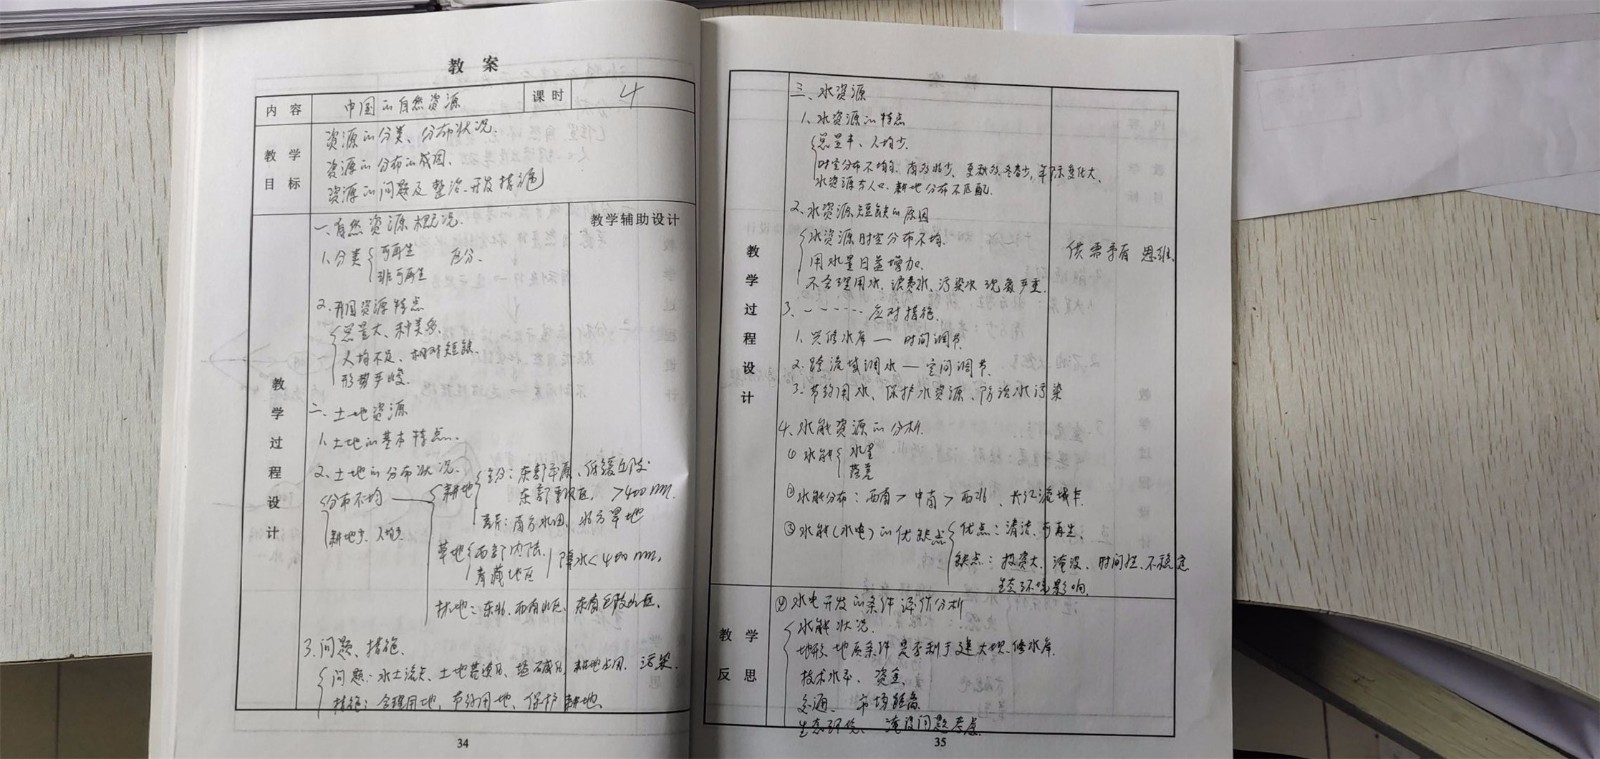 教案
内容 中国的自然资源 课时 4
教学目标
资源的分类、分布状况.
资源的分布的成因.
资源的问题及整治、开发措施
教学过程设计
教学辅助设计
一.自然资源概况.
1.分类 可再生
非可再生
区分.
2.我国资源特点
总量大、种类多.
人均不足、相对短缺
形势严峻.
二、土地资源
1.土地的基本特点.
2.土地的分布状况.
分布不均
耕地少、人均少
耕地 主分:东部平原、低缓丘陵
东部季风区. >400mm.
差异:南方水田、北方旱地
草地 西部内陆
青藏地区
降水<400mm.
林地:东北、西南山区、东南丘陵山区.
3.问题、措施.
问题:水土流失、土地荒漠化、盐碱化、耕地占用、污染.
措施:合理用地、节约用地、保护耕地.
34
教学过程设计
三、水资源
1.水资源的特点
总量丰、人均少.
时空分布不均匀:南多北少、夏秋多冬春少,年际变化大、
水资源与人口、耕地分布不匹配.
2.水资源短缺的原因
水资源时空分布不均.
用水量日益增加.
不合理用水、浪费水、污染水现象严重.
供需矛盾 思维.
3.------应对措施.
1.兴修水库—时间调节.
2.跨流域调水—空间调节.
3.节约用水、保护水资源、防治水污染
4.水能资源的分析.
①水能 水量
落差
②水能分布:西南>中南>西北、长江流域
③水能(水电)的优缺点 优点:清洁、可再生、
缺点:投资大、淹没、时间长、不稳定
生态环境影响
教学反思
④水电开发的条件评价分析
水能状况.
地形、地质条件是否利于建大坝、修水库.
技术水平、资金.
交通、市场距离
生态环境、淹没问题考虑.
35